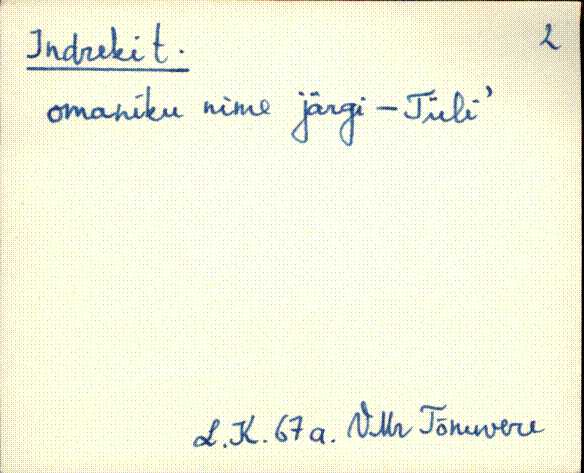 Indreki t. 2
omaniku nime järgi – Tüli'
L.K. 67 a. VMr Tõnuvere